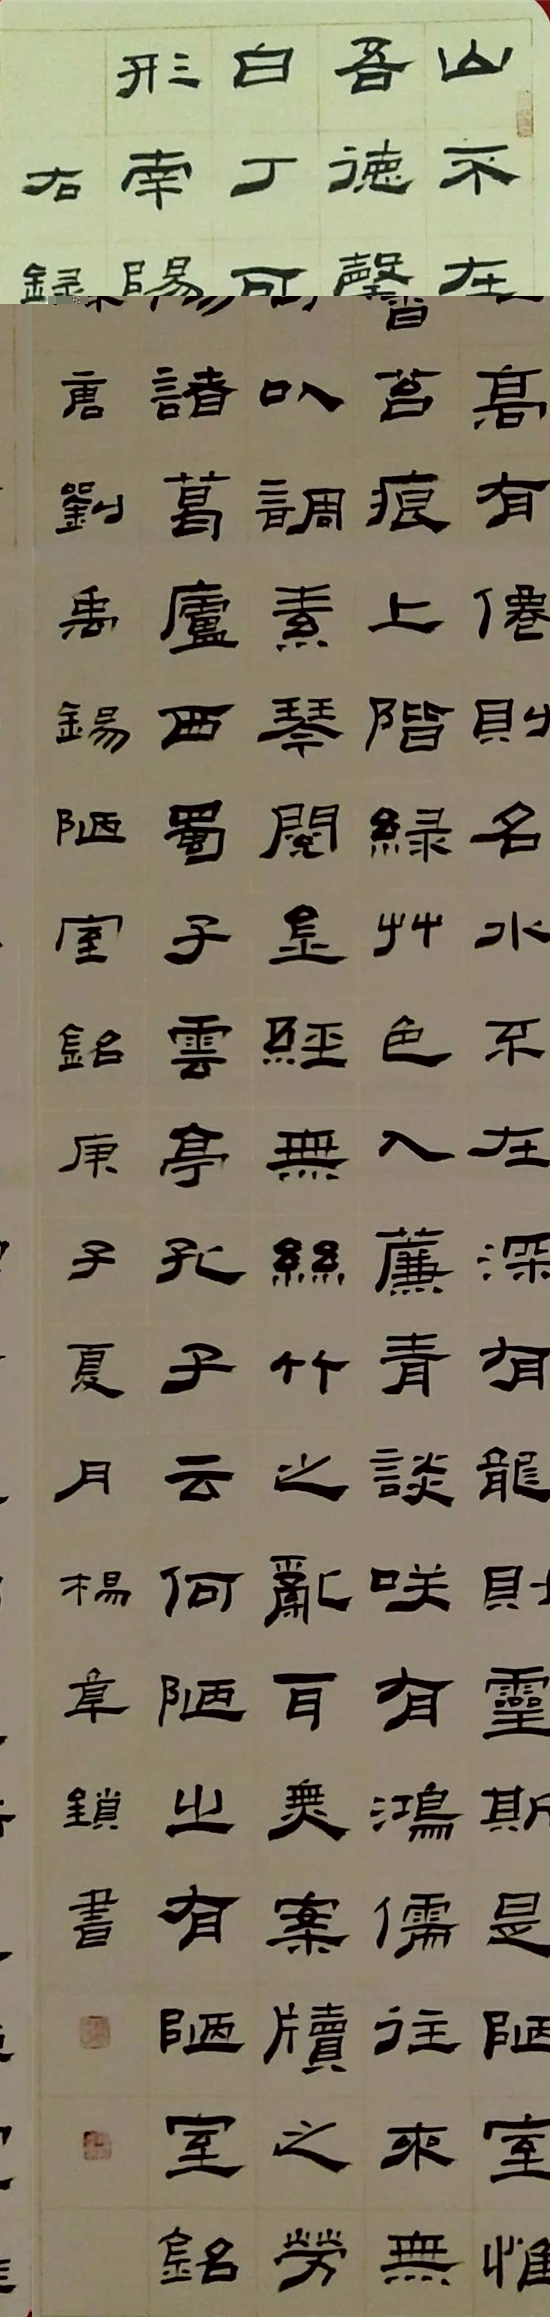 山不在高有僊則名水不在深有龍則靈斯是陋室惟
吾德馨苔痕上階緑艸色入薕青談咲有鴻儒往來無
白丁可以調素琴閱金經無絲竹之亂耳無案牘之勞
形南陽諸葛廬西蜀子雲亭孔子云何陋之有陋室銘
右録唐劉禹錫陋室銘庚子夏月楊章鎖書